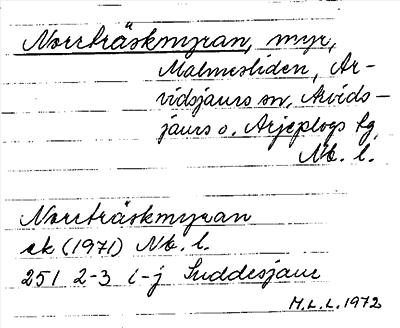 Norrträskmyran, myr,
Malmesliden, Ar-
vidsjaurs sn, Arvids-
jaurs o. Arjeplogs tg,
Nb. l.
Norrträskmyran
ek (1971) Nb. l.
251 2-3 i-j Suddesjaur
M.L.L. 1972